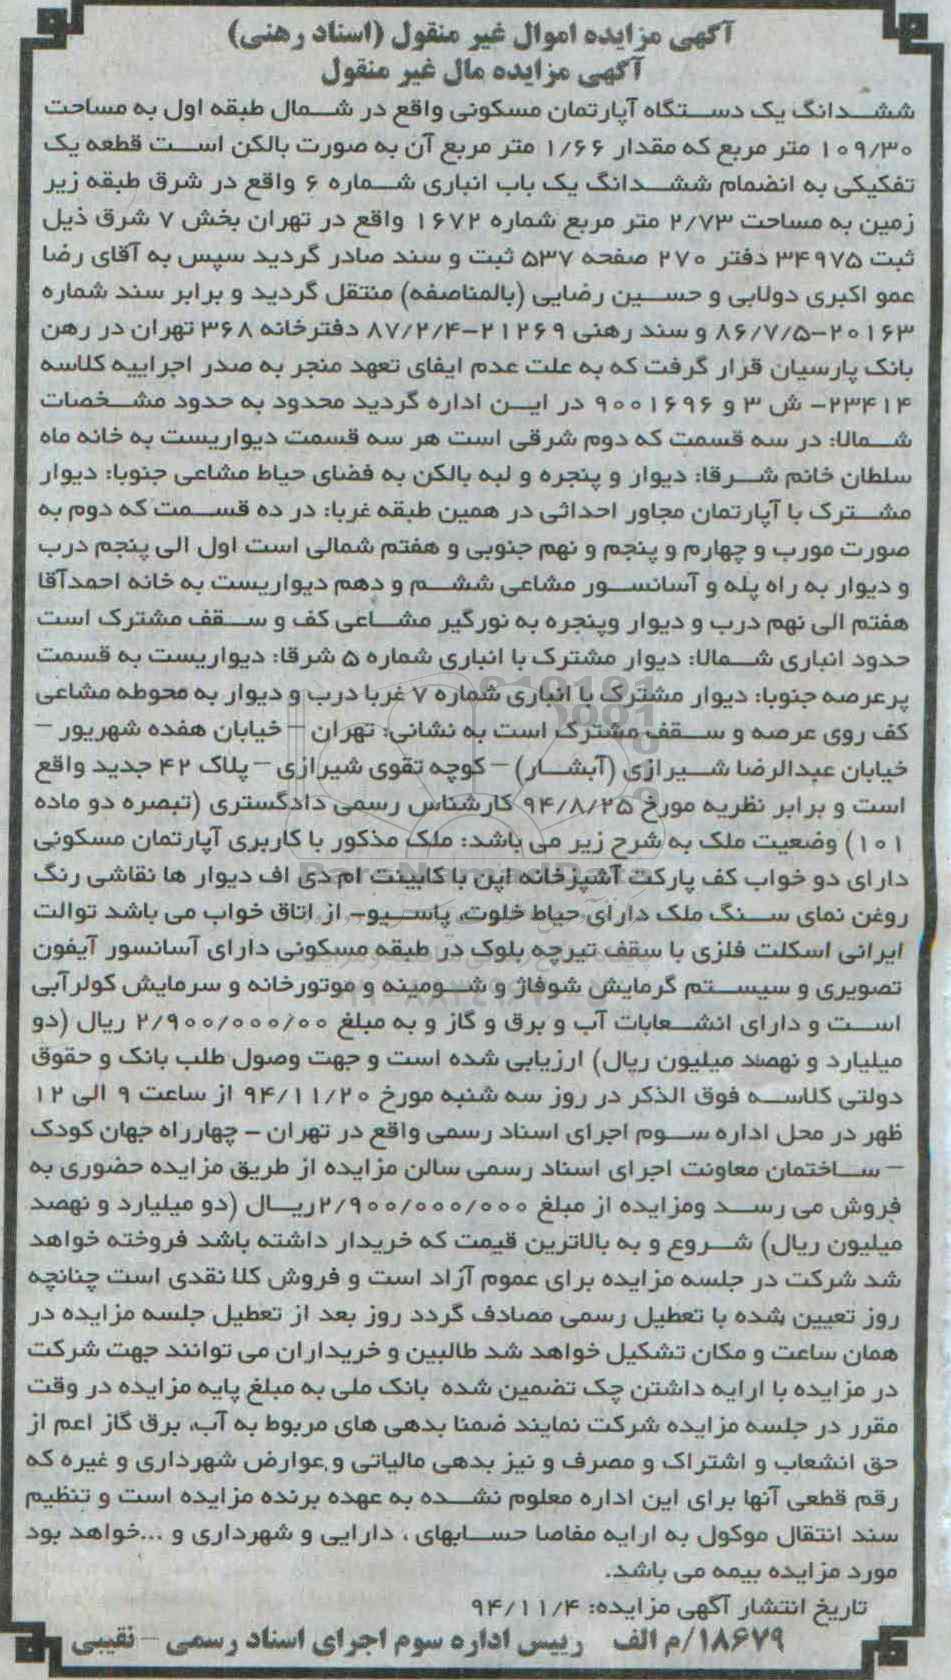 آگهی مزایده اموال غیر منقول (اسناد رهنی)
آگهی مزایده مال غیر منقول
ششدانگ یک دستگاه آپارتمان مسکونی واقع در شمال طبقه اول به مساحت
۱۰۹/۳۰ متر مربع که مقدار ۱/۶۶ متر مربع آن به صورت بالکن است قطعه یک
تفکیکی به انضمام ششدانگ یک باب انباری شماره ۶ واقع در شرق طبقه زیر
زمین به مساحت ۲/۷۳ متر مربع شماره ۱۶۷۲ واقع در تهران بخش ۷ شرق ذیل
ثبت ۳۴۹۷۵ دفتر ۲۷۰ صفحه ۵۳۷ ثبت و سند صادر گردید سپس به آقای رضا
عمو اکبری دولابی و حسین رضایی (بالمناصفه) منتقل گردید و برابر سند شماره
۲۰۱۶۳-۸۶/۷/۵ و سند رهنی ۲۱۲۶۹-۸۷/۲/۴ دفترخانه ۳۶۸ تهران در رهن
بانک پارسیان قرار گرفت که به علت عدم ایفای تعهد منجر به صدر اجراییه کلاسه
۲۳۴۱۴- ش ۳ و ۹۰۰۱۶۹۶ در این اداره گردید محدود به حدود مشخصات
شمالا: در سه قسمت که دوم شرقی است هر سه قسمت دیواریست به خانه ماه
سلطان خانم شرقا: دیوار و پنجره و لبه بالکن به فضای حیاط مشاعی جنوبا: دیوار
مشترک با آپارتمان مجاور احداثی در همین طبقه غربا: در ده قسمت که دوم به
صورت مورب و چهارم و پنجم و نهم جنوبی و هفتم شمالی است اول الی پنجم درب
و دیوار به راه پله و آسانسور مشاعی ششم و دهم دیواریست به خانه احمدآقا
هفتم الی نهم درب و دیوار وپنجره به نورگیر مشاعی کف و سقف مشترک است
حدود انباری شمالا: دیوار مشترک با انباری شماره ۵ شرقا: دیواریست به قسمت
پرعرصه جنوبا: دیوار مشترک با انباری شماره ۷ غربا درب و دیوار به محوطه مشاعی
کف روی عرصه و سقف مشترک است به نشانی: تهران – خیابان هفده شهریور –
خیابان عبدالرضا شیرازی (آبشار) – کوچه تقوی شیرازی – پلاک ۴۲ جدید واقع
است و برابر نظریه مورخ ۹۴/۸/۲۵ کارشناس رسمی دادگستری (تبصره دو ماده
۱۰۱) وضعیت ملک به شرح زیر می باشد: ملک مذکور با کاربری آپارتمان مسکونی
دارای دو خواب کف پارکت آشپزخانه اپن با کابینت ام دی اف دیوار ها نقاشی رنگ
روغن نمای سنگ ملک دارای حیاط خلوت، پاسیو- از اتاق خواب می باشد توالت
ایرانی اسکلت فلزی با سقف تیرچه بلوک در طبقه مسکونی دارای آسانسور آیفون
تصویری و سیستم گرمایش شوفاژ و شومینه و موتورخانه و سرمایش کولرآبی
است و دارای انشعابات آب و برق و گاز و به مبلغ ۲/۹۰۰/۰۰۰/۰۰ ریال (دو
میلیارد و نهصد میلیون ریال) ارزیابی شده است و جهت وصول طلب بانک و حقوق
دولتی کلاسه فوق الذکر در روز سه شنبه مورخ ۹۴/۱۱/۲۰ از ساعت ۹ الی ۱۲
ظهر در محل اداره سوم اجرای اسناد رسمی واقع در تهران – چهارراه جهان کودک
– ساختمان معاونت اجرای اسناد رسمی سالن مزایده از طریق مزایده حضوری به
فروش می رسد ومزایده از مبلغ ۲/۹۰۰/۰۰۰/۰۰۰ریال (دو میلیارد و نهصد
میلیون ریال) شروع و به بالاترین قیمت که خریدار داشته باشد فروخته خواهد
شد شرکت در جلسه مزایده برای عموم آزاد است و فروش کلا نقدی است چنانچه
روز تعیین شده با تعطیل رسمی مصادف گردد روز بعد از تعطیل جلسه مزایده در
همان ساعت و مکان تشکیل خواهد شد طالبین و خریداران می توانند جهت شرکت
در مزایده با ارایه داشتن چک تضمین شده بانک ملی به مبلغ پایه مزایده در وقت
مقرر در جلسه مزایده شرکت نمایند ضمنا بدهی های مربوط به آب، برق گاز اعم از
حق انشعاب و اشتراک و مصرف و نیز بدهی مالیاتی و عوارض شهرداری و غیره که
رقم قطعی آنها برای این اداره معلوم نشده به عهده برنده مزایده است و تنظیم
سند انتقال موکول به ارایه مفاصا حسابهای ، دارایی و شهرداری و ...خواهد بود
مورد مزایده بیمه می باشد.
تاریخ انتشار آگهی مزایده: ۹۴/۱۱/۴
۱۸۶۷۹/م الف رییس اداره سوم اجرای اسناد رسمی – نقیبی